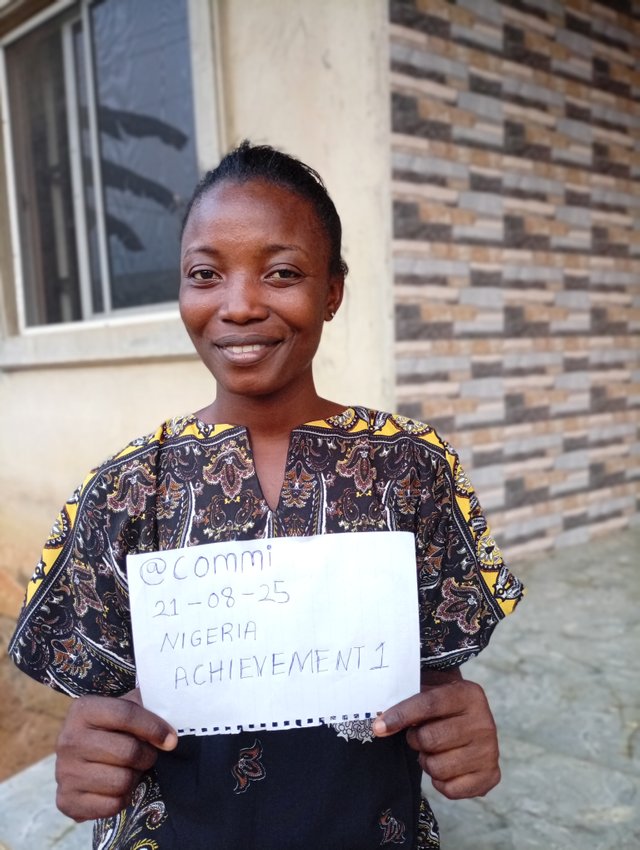 @commi
21-08-25
NIGERIA
ACHIEVEMENT 1